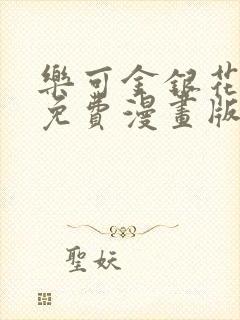 樂可金銀花
免費漫畫版
聖妖